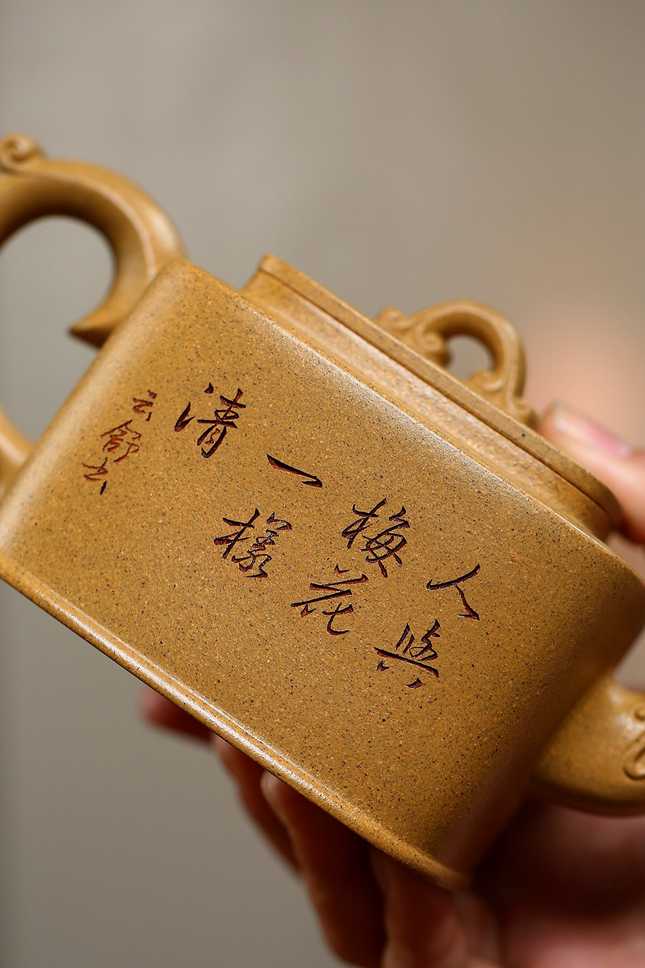 人與
梅花
一樣
清
云舒